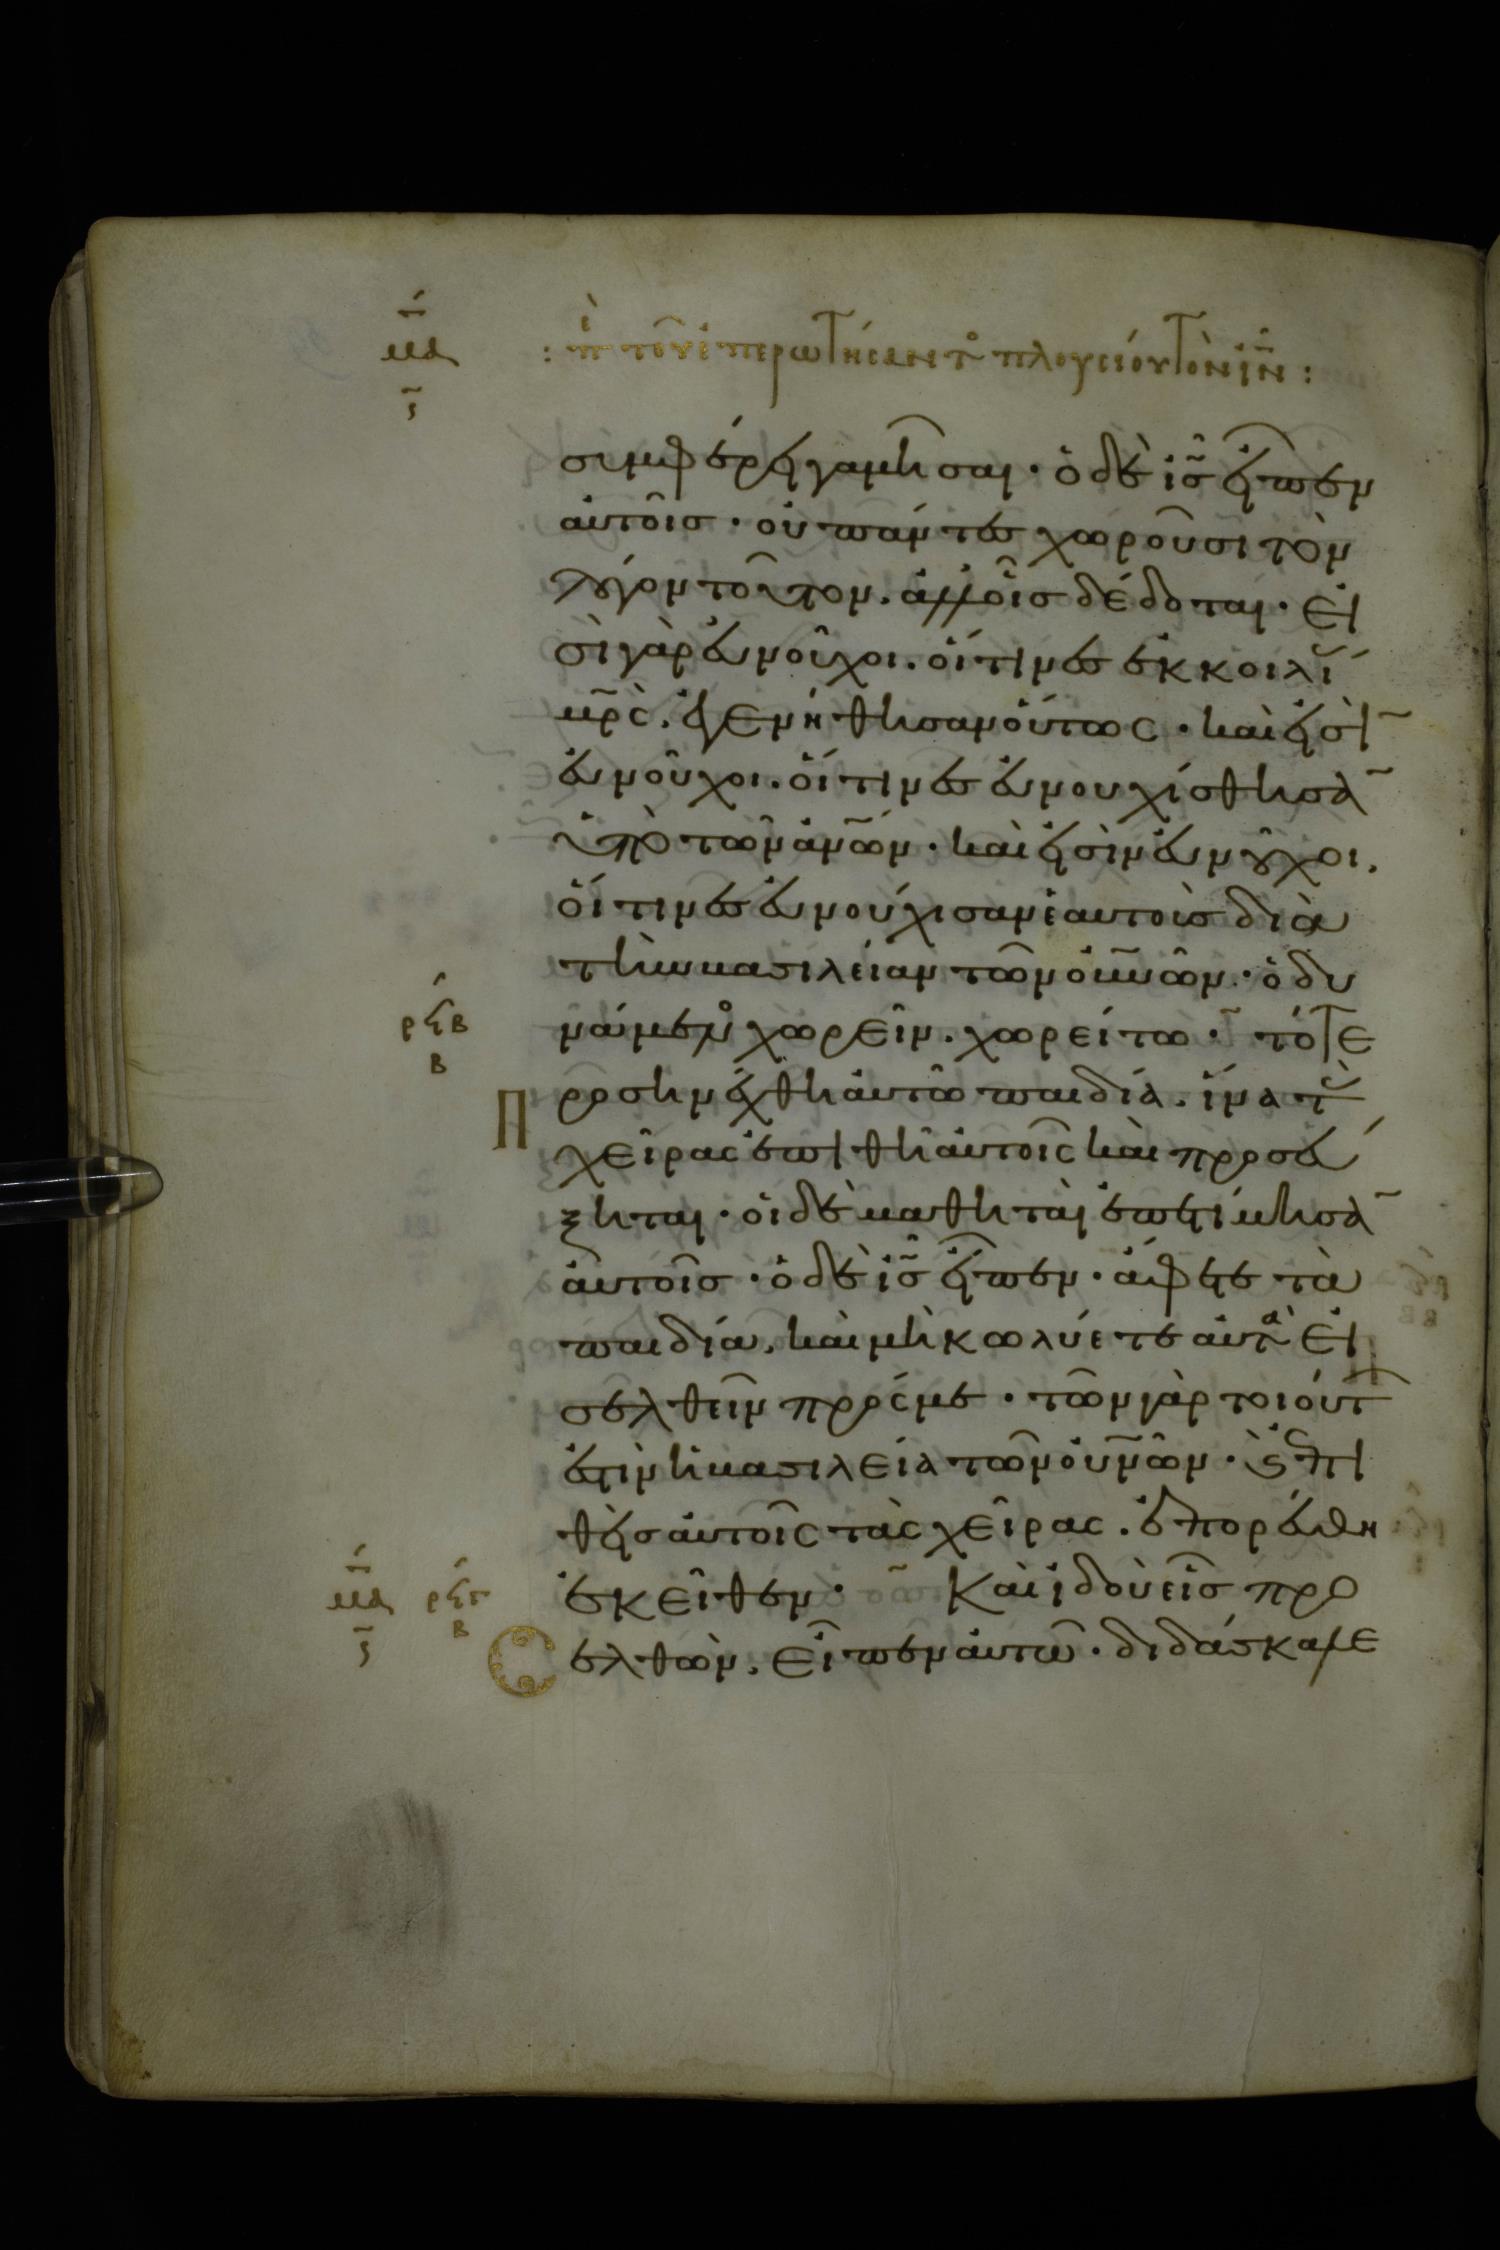 μα
ς
: πὲ τοῦ ἐπερωτήσαντο πλουσίου τὸν ἰν :
συμφέρει γαμῆσαι · ὁ δὲ ις εἶπεν
αὐτοῖς · οὐ πάντες χωροῦσι τὸν
λόγον τοῦτον . ἀλλ οἷς δέδοται · εἰ
σὶ γὰρ εὐνοῦχοι . οἵτινες ἐκ κοιλί
μρς . ἐγεννήθησαν οὕτως · καὶ εἰσὶ
εὐνοῦχοι . οἵτινες εὐνουχίσθησα
ὑπὸ τῶν ἀνων · καὶ εἰσὶν εὐνοῦχοι .
οἵτινες εὐνούχισαν ἑαυτοὺς διὰ
τὴν βασιλείαν τῶν οὐνῶν · ὁ δυ
νάμενο χωρεῖν . χωρείτω · τότε
ρϟβ
β
Προσηνέχθη αὐτῶ παιδία . ἵνα τὰ
χεῖρας ἐπιθῆ αὐτοῖς καὶ προσεύ
ξηται · οἱ δὲ μαθηταὶ ἐπετίμησα
αὐτοῖς · ὁ δὲ ις εἶπεν · ἄφετε τὰ
παιδία . καὶ μὴ κωλύετε αὐτὰ εἰ
σελθεῖν πρός με · τῶν γὰρ τοιούτ
ἐστὶν ἡ βασιλεία τῶν οὐνῶν · καὶ ἐπι
θεὶς αὐτοῖς τὰς χεῖρας . ἐπορεύθη
ἐκεῖθεν · Καὶ ἰδοὺ εἷς προ
μα ρϟγ
ς β
σελθὼν . εἶπεν αὐτῶ · διδάσκαλε